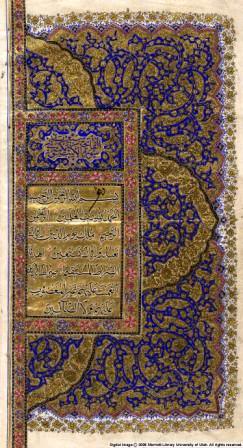 بسم الله الرحمن الرحيم
الحمد لله رب العالمين الرحمن
الرحيم مالك يوم الدين اياك
نعبد واياك نستعين اهدنا
الصراط المستقيم صراط الذين
انعمت عليهم غير المغضوب
عليهم ولا الضالين
Digital Image © 2006 Marriott Library, University of Utah. All rights reserved.